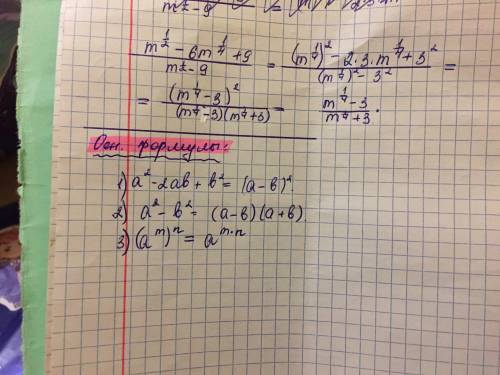 m^{1/2} - 6m^{1/4} + 9 / m^{1/2} - 9 = (m^{1/4})^2 - 2·3·m^{1/4} + 3^2 / (m^{1/4})^2 - 3^2 =
= (m^{1/4} - 3)^2 / (m^{1/4} - 3)(m^{1/4} + 3) = m^{1/4} - 3 / m^{1/4} + 3 .
Осн. формулы:
1) a² - 2ав + в² = (а - в)².
2) a² - в² = (а - в)(а + в).
3) (a^m)^n = a^{m·n}